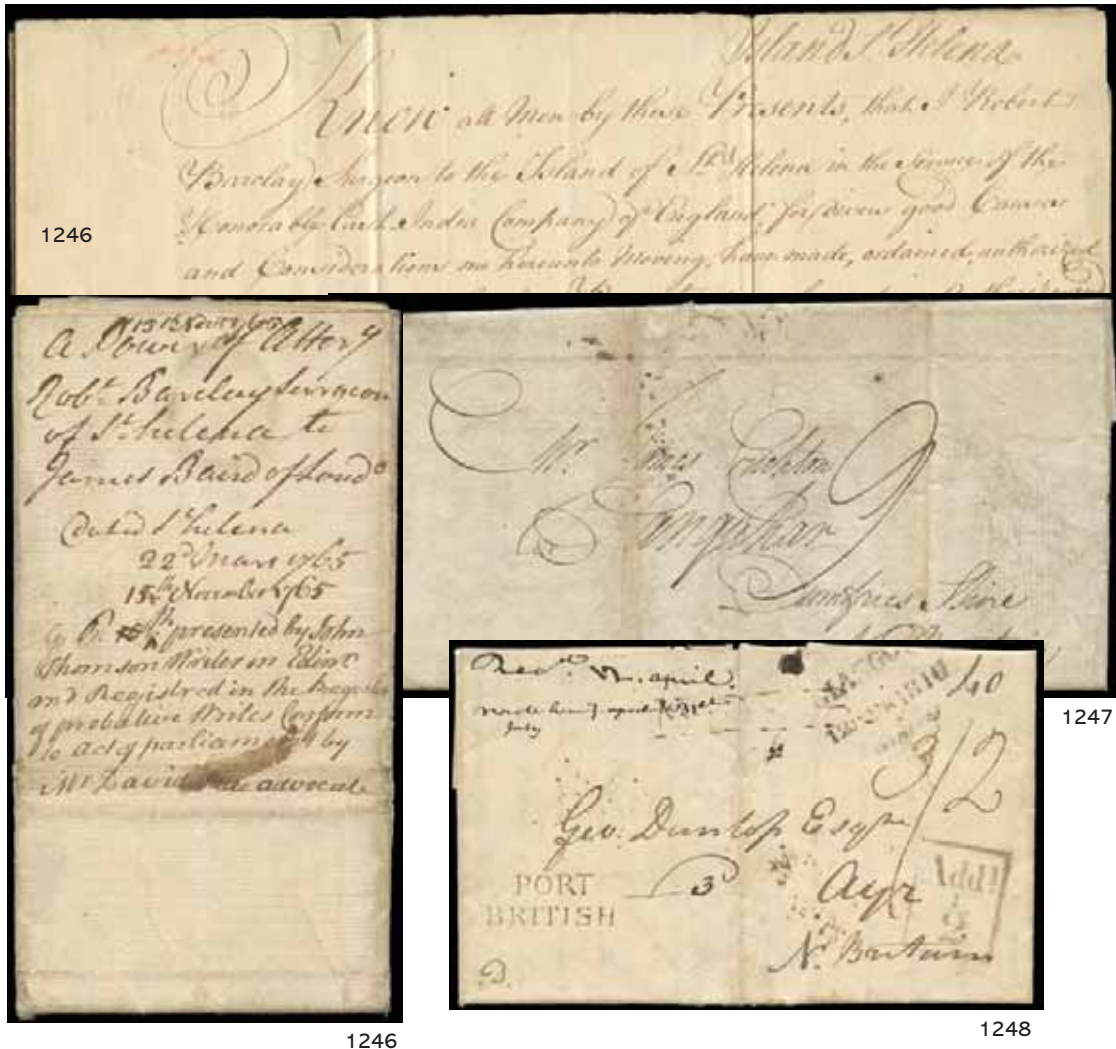 Island St. Helena
Know all Men by these Presents, that I Robert
Barclay Surgeon to the Island of St. Helena in the Service of the
Honorable East India Company of England, for divers good Causes
and Considerations me hereunto Moving, have made, ordained, authorized
1246
A Power of Attory
Robt. Barclay Surgeon
of St. helena to
James Baird of Londo
dated St. helena
22d. 1765
15th November 1765
presented by John
Thomson Writer in Edinr
and Registred in the Register
of probative Writes Conform
to act of parliament by
Mr David advocate
1246
Mr. James
Dumfries Shire
1247
Recd. april
40
3/2
Geo: Dunlop Esqre
3
Ayr
No. Britain
PORT
BRITISH
Addl
½
1248